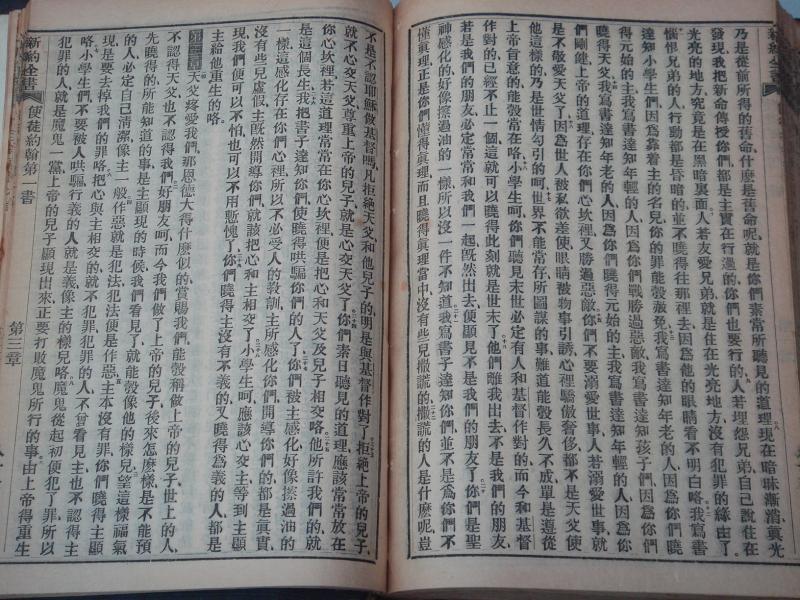 新約全書
乃是從前所得的舊命什麽是舊命呢就是你們素常所聽見的道理現在暗昧漸消眞光
發現我把新命傳授你們都是主實在行過的你們也要行的人若埋怨兄弟自己說住在
光亮的地方究竟是在黑暗裏面人若友愛兄弟就是住在光亮地方沒有犯罪的緣由了
惱恨兄弟的人行動都是昏暗的並不曉得往那裡去因爲他的眼睛看不明白咯我寫書
達知小學生們因爲靠着主的名兒你的罪能彀赦免我寫書達知年老的人因爲你們曉
得元始的主我寫書達知年輕的人因爲你們戰勝過惡敵我寫書達知孩子們因爲你們
曉得天父我寫書達知年老的人因爲你們曉得元始的主我寫書達知年輕的人因爲你
們剛健上帝的道理存在你們心坎裡又勝過惡敵你們不要溺愛世事人若溺愛世事就
是不敬愛天父了因爲世人被私欲差使眼睛被物事引誘心裡驕傲奢侈都不是天父使
他這樣的乃是世情勾引的呵世界不能常存所圖謀的事難道能彀長久不成單是遵從
上帝旨意的能彀常在咯小學生呵你們聽見末世必定有人和基督作對的而今和基督
作對的已經不止一個這就可以曉得此刻就是世末了他們離我出去不是我們的朋友
若是我們的朋友必定常常和我們一起旣然出去便顯見不是我們的朋友了你們是聖
神感化的好像擦過油的一樣所以沒一件不知道我寫書子達知你們並不是爲你們不
懂眞理正是你們懂得眞理而且曉得眞理當中沒有些兒撒謊的撒謊的人是什麽呢豈
不是不認耶穌做基督嗎凡拒絕天父和他兒子的明是與基督作對了拒絕上帝的兒子
就不心交天父尊重上帝的兒子就是心交天父了你們素日聽見的道理應該常常放在
你心坎裡若這道理常常在你心坎裡便是把心和天父及兒子相交咯他所許我們的就
是這個長生我把書子達知你們使曉得哄騙你們的人了你們被主感化好像擦過油的
一樣這感化存在你們心裡所以不必受人的教訓主所感化你們開導你們的都是眞實
沒有些兒虛假主旣然開導你們就該把心和主相交了小學生們呵應該心交主等到主
現我們便可以不怕也可以不用慚愧了你們曉得主沒有不義的又曉得爲義的人都是
主給他重生的咯
天父疼愛我們那恩德大得什麽似的賞賜我們能彀稱做上帝的兒子世上的人
不認得天父也不認得我們好朋友呵而今我們做了上帝的兒子後來怎麽樣是不能預
先曉得的所能知道的事是主顯現的時候我們看見了就能彀像他的樣兒望這樣福氣
的人必定自己清潔像主一般作惡就是犯法犯法便是作惡主本沒有罪你們曉得主顯
現是要去掉我們的罪咯把心與主相交的就不犯罪犯罪的人不曾看見主也不認得主
咯小學生們不要被人哄騙行義的人就是義像主的樣兒咯魔鬼從起初便犯了罪所以
犯罪的人就是魔鬼一黨上帝的兒子顯現出來正要打敗魔鬼所行的事由上帝得重生
新約全書 使徒約翰第一書 第三章